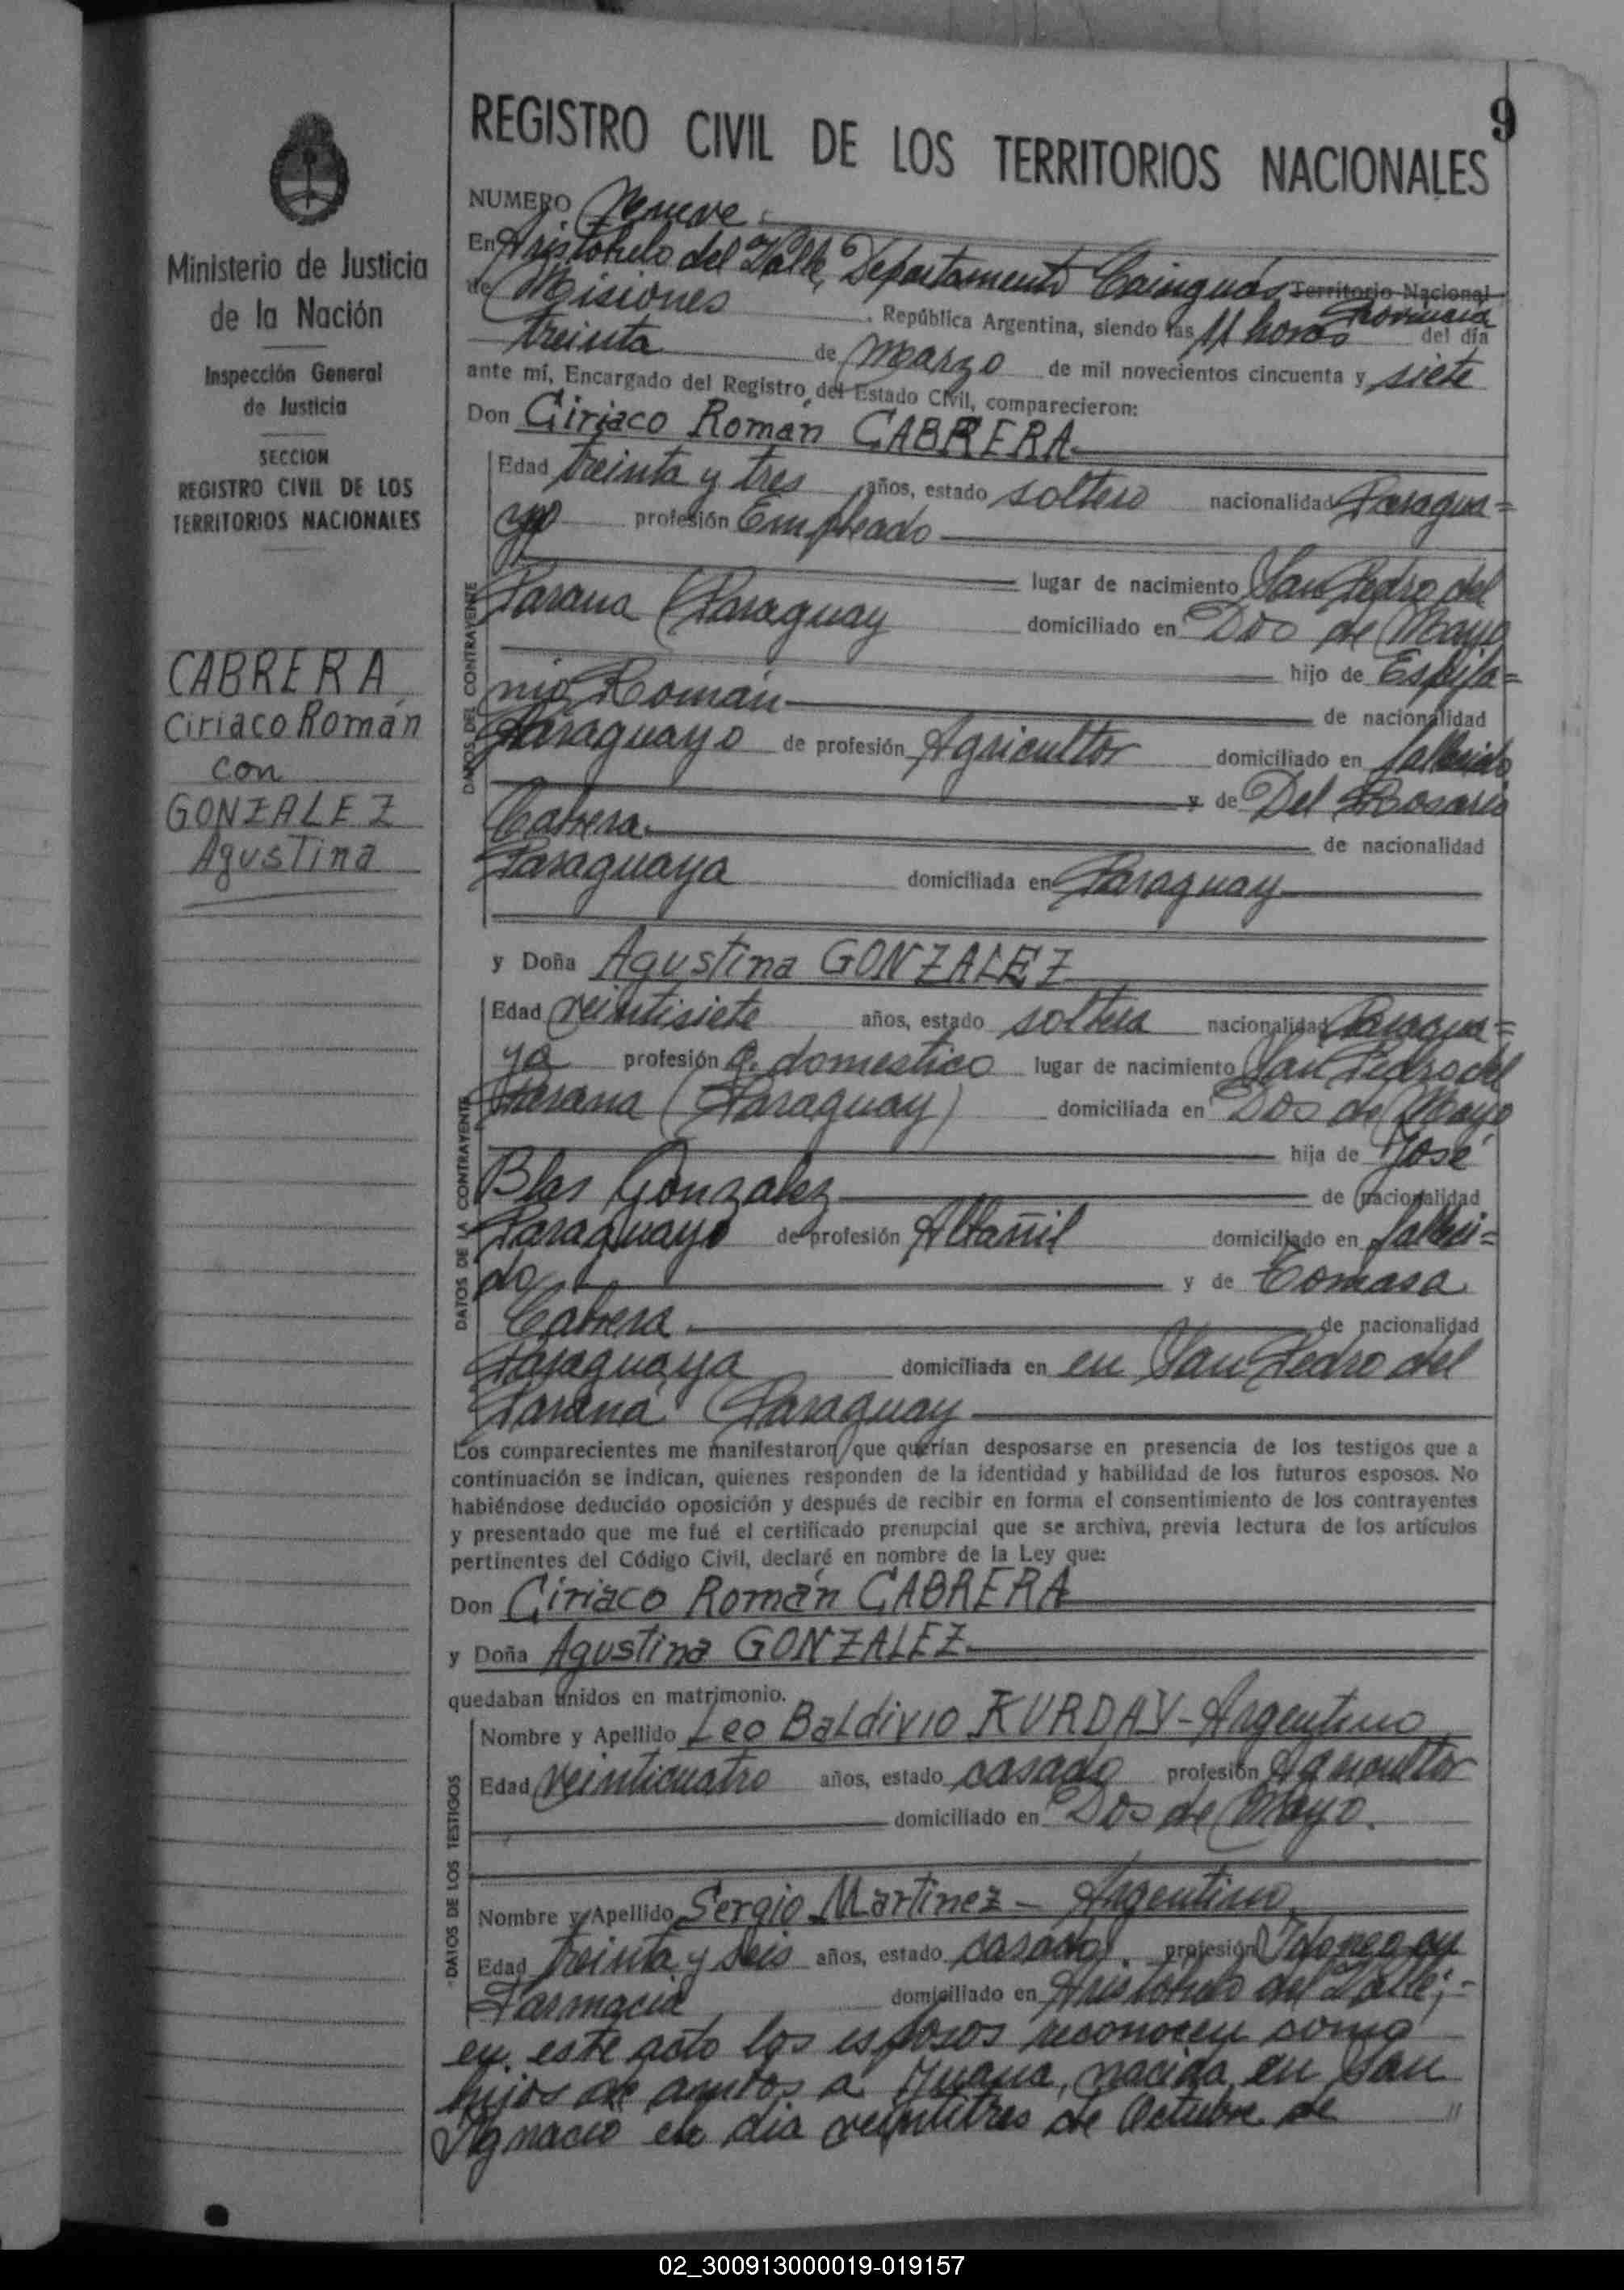 9
REGISTRO CIVIL DE LOS TERRITORIOS NACIONALES
Ministerio de Justicia
de la Nación
Inspección General
de Justicia
SECCION
REGISTRO CIVIL DE LOS
TERRITORIOS NACIONALES
CABRERA
Ciriaco Román
con
GONZALEZ
Agustina
NUMERO Nueve
En Aristóbulo del Valle, Departamento Cainguás Territorio Nacional
Provincia
de Misiones, República Argentina, siendo las 11 horas del día
treinta de Marzo de mil novecientos cincuenta y siete
ante mí, Encargado del Registro del Estado Civil, comparecieron:
Don Ciriaco Román CABRERA
DATOS DEL CONTRAYENTE
Edad treinta y tres años, estado soltero nacionalidad Paragua=
yo profesión Empleado
lugar de nacimiento San Pedro del
Parana (Paraguay domiciliado en Dos de Mayo
hijo de Espifa=
nio Román de nacionalidad
Paraguayo de profesión Agricultor domiciliado en fallecido
y de Del Rosario
Cabrera de nacionalidad
Paraguaya domiciliada en Paraguay
y Doña Agustina GONZALEZ
DATOS DE LA CONTRAYENTE
Edad veintisiete años, estado soltera nacionalidad Paragua=
ya profesión Q. domestico lugar de nacimiento San Pedro del
Parana (Paraguay) domiciliada en Dos de Mayo
hija de José
Blas Gonzalez de nacionalidad
Paraguayo de profesión Albañil domiciliado en falleci=
do y de Tomasa
Cabrera de nacionalidad
Paraguaya domiciliada en en San Pedro del
Paraná (Paraguay
Los comparecientes me manifestaron que querían desposarse en presencia de los testigos que a
continuación se indican, quienes responden de la identidad y habilidad de los futuros esposos. No
habiéndose deducido oposición y después de recibir en forma el consentimiento de los contrayentes
y presentado que me fué el certificado prenupcial que se archiva, previa lectura de los artículos
pertinentes del Código Civil, declaré en nombre de la Ley que:
Don Ciriaco Román CABRERA
y Doña Agustina GONZALEZ
quedaban unidos en matrimonio.
DATOS DE LOS TESTIGOS
Nombre y Apellido Leo Baldivio KURDAY - Argentino
Edad veinticuatro años, estado casado profesión Agricultor
domiciliado en Dos de Mayo.
Nombre y Apellido Sergio Martinez - Argentino
Edad treinta y seis años, estado casado. profesión Idoneo en
Farmacia domiciliado en Aristóbulo del Valle;-
en este acto los esposos reconocen como
hijos de ambos a Juana, nacida en San
Ignacio el dia veintitres de Octubre de "
02_300913000019-019157